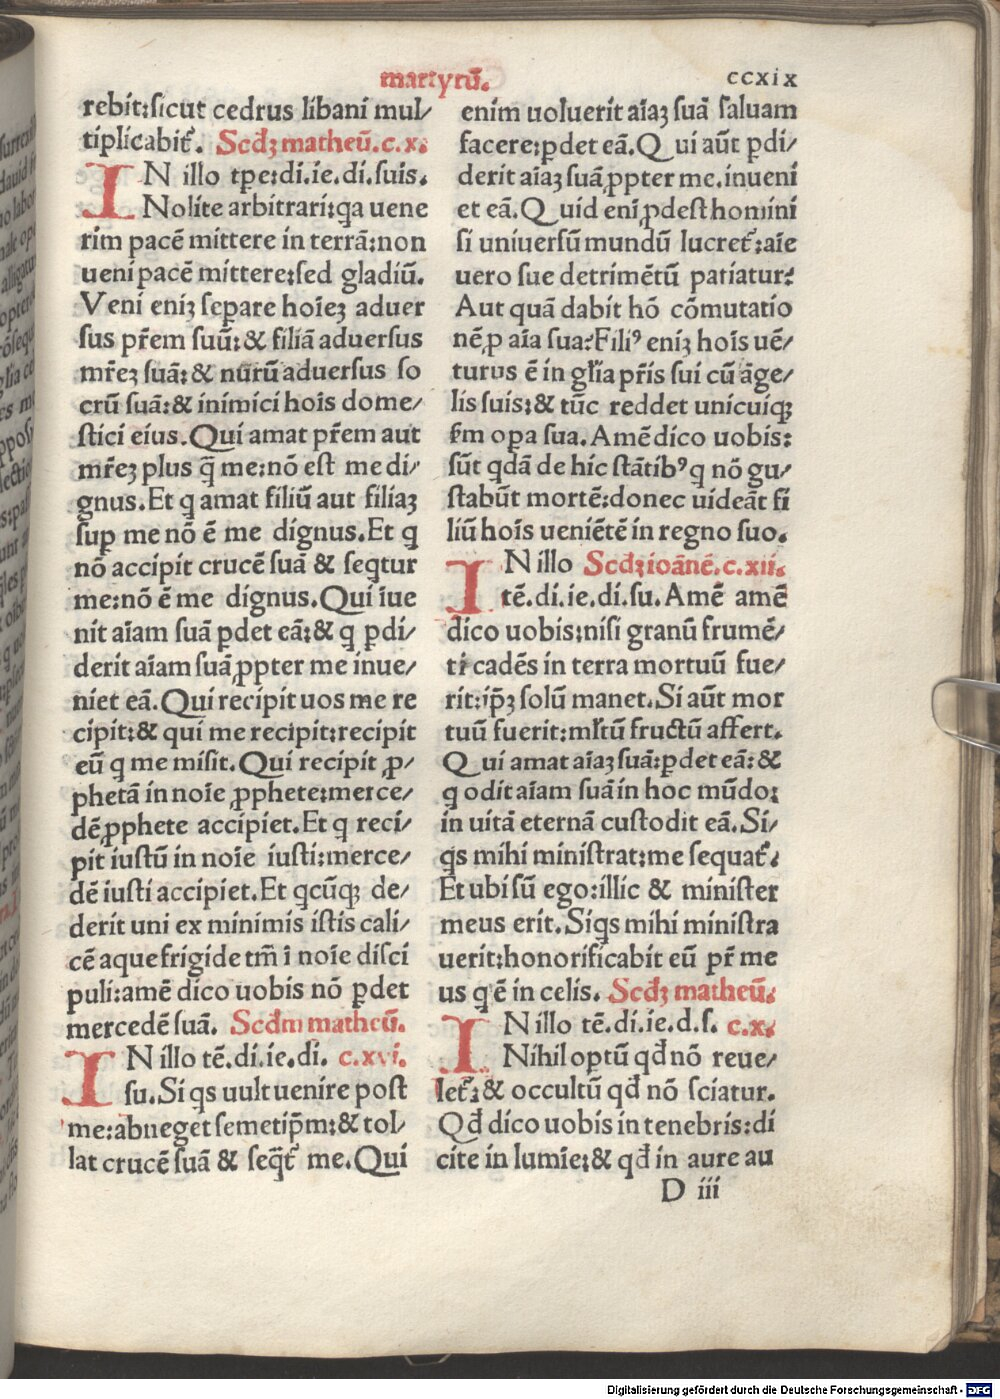 martyrū.
ccxix
rebit:sicut cedrus libani mul/
tiplicabit᷑. Scd̄ꝫ matheū.c.x.
IN illo tp̄e:di.ie.di.suis.
Nolite arbitrari:qa uene
rim pacē mittere in terrā:non
ueni pacē mittere:sed gladiū.
Veni eniꝫ separe hoīeꝫ aduer
sus pr̄em suū:& filiā aduersus
mr̄eꝫ suā:& nurū aduersus so
crū suā:& inimici hoīs dome/
stici eius.Qui amat pr̄em aut
mr̄eꝫ plus q̄ me:nō est me di/
gnus.Et q amat filiū aut filiaꝫ
suꝑ me nō ē me dignus.Et q
nō accipit crucē suā & seqtur
me:nō ē me dignus.Qui īue
nit aīam suā ꝑdet eā:& q ꝑdi/
derit aīam suā ꝓpter me inue/
niet eā.Qui recipit uos me re
cipit:& qui me recipit:recipit
eū q me misit.Qui recipit ꝓ/
phetā in noīe ꝓphete:merce/
dē ꝓphete accipiet.Et q reci/
pit iustū in noīe iusti:merce/
dē iusti accipiet.Et qcūqꝫ de/
derit uni ex minimis istis cali/
cē aque frigide tm̄ ī noīe disci
puli:amē dico uobis nō ꝑdet
mercedē suā. Scd̄m matheū.
IN illo tē.di.ie.di. c.xvi.
su.Si qs uult uenire post
me:abneget semetip̄m:& tol/
lat crucē suā & seq̄t᷑ me.Qui
enim uoluerit aīaꝫ suā saluam
facere:ꝑdet eā.Qui aūt ꝑdi/
derit aīaꝫ suā ꝓpter me.inueni
et eā.Quid eni ꝓdest homini
si uniuersū mundū lucret᷑:aīe
uero sue detrimētū patiatur?
Aut quā dabit hō cōmutatio
nē ꝓ aīa sua?Filiꝰ eniꝫ hoīs uē/
turus ē in gl̄ia pr̄is sui cū āge/
lis suis:& tūc reddet unicuiqꝫ
fm oꝑa sua.Amē dico uobis:
sūt qdā de hic stātibꝰ q nō gu/
stabūt mortē:donec uideāt fi
liū hoīs ueniētē in regno suo.
IN illo Scd̄ꝫ ioānē.c.xii.
tē.di.ie.di.su.Amē amē
dico uobis:nisi granū frumē/
ti cadēs in terra mortuū fue/
rit:ip̄ꝫ solū manet.Si aūt mor
tuū fuerit:ml̄tū fructū affert.
Qui amat aīaꝫ suā:ꝑdet eā:&
q odit aīam suā in hoc mūdo:
in uitā eternā custodit eā.Si/
qs mihi ministrat:me sequat᷑.
Et ubi sū ego:illic & minister
meus erit.Si qs mihi ministra
uerit:honorificabit eū pr̄ me
us q ē in celis. Scd̄ꝫ matheū.
IN illo tē.di.ie.d.s. c.x.
Nihil optū qd̄ nō reue/
let᷑:& occultū qd̄ nō sciatur.
Qd̄ dico uobis in tenebris:di
cite in lumīe:& qd̄ in aure au
D iii
Digitalisierung gefördert durch die Deutsche Forschungsgemeinschaft - DFG